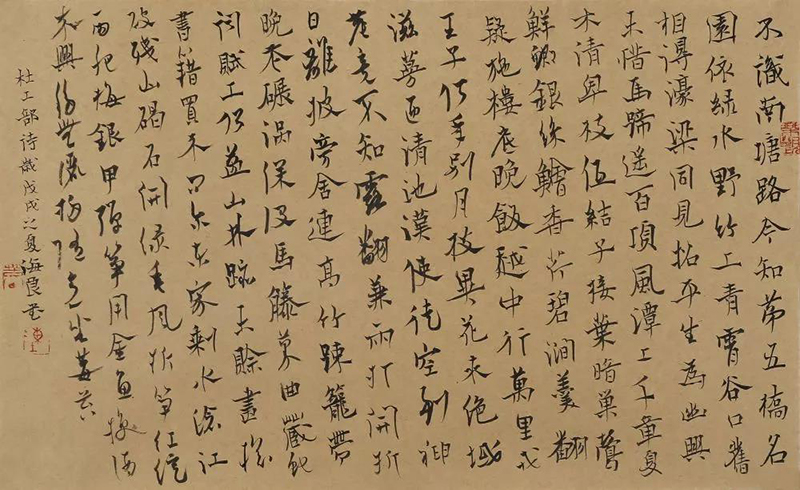 不識南塘路今知第五橋名
園依綠水野竹上青霄谷口舊
相得濠梁同見招平生為幽興
未惜馬蹄遙百頃風潭上千章夏
木清卑枝低結子接葉暗巢鶯
鮮鯽銀絲鱠香芹碧澗羹翻
疑柂樓底晚飯越中行萬里戎
王子何年別月枝異花來絕域
滋蔓匝清池漢使徒空到神
農竟不知露翻兼雨打開折
日離披旁舍連高竹疎籬帶
晚花碾渦深沒馬藤蔓曲藏蛇
詞賦工何益山林跡未賒盡捻
書籍買來問尔東家剩水滄江
破殘山碣石開綠垂風折笋紅綻
雨肥梅銀甲彈箏用金魚換酒
來興移無灑掃隨意坐莓苔
杜工部詩歲戊戌之夏海良書